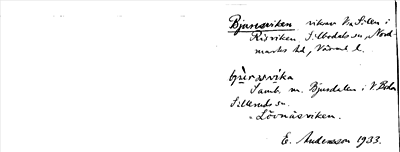 Bjursviken viken Va Silen i
Rösviken Silbodals sn, Nord-
marks hd, Värml. l.
Samb. m. Bjursdalen i V. Boda
Silleruds sn.
= Lövnäsviken.
E. Andersson 1933.